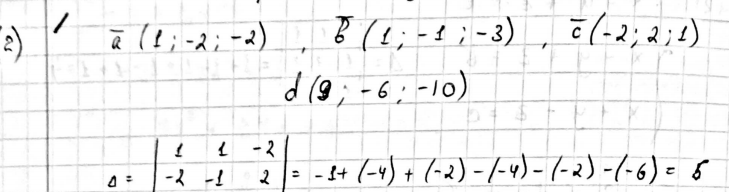 2) a̅ (1; -2; -2) , b̅ (1; -1; -3) , c̅ (-2; 2; 1)
d (9; -6; -10)
Δ = | 1 1 -2 |
| -2 -1 2 | = -1+(-4)+(-2)-(-4)-(-2)-(-6) = 5